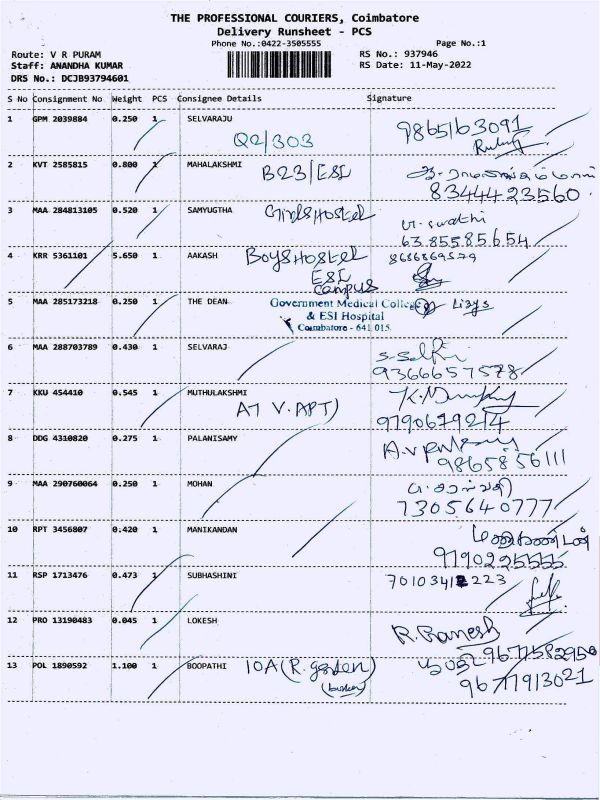 THE PROFESSIONAL COURIERS, Coimbatore
Delivery Runsheet - PCS
Phone No.:0422-3505555
Page No.:1
Route: V R PURAM
RS No.: 937946
Staff: ANANDHA KUMAR
RS Date: 11-May-2022
DRS No.: DCJB93794601
S No Consignment No Weight PCS Consignee Details Signature
1 GPM 2039884 0.250 1 SELVARAJU
Q2/303 9865163091
2 KVT 2585815 0.800 1 MAHALAKSHMI
B23/ESI
8344423560
3 MAA 284813105 0.520 1 SAMYUGTHA
Girls Hostel
M. Swathi
6385585654
4 KRR 5361101 5.650 1 AAKASH
Boys Hostel 8686869579
ESI
campus
5 MAA 285173218 0.250 1 THE DEAN
Government Medical College
& ESI Hospital
Coimbatore - 641 015.
6 MAA 288703789 0.430 1 SELVARAJ
9366657578
7 KKU 454410 0.545 1 MUTHULAKSHMI
A7 V.APT)
9790679214
8 DDG 4310820 0.275 1 PALANISAMY
9865856111
9 MAA 290760064 0.250 1 MOHAN
7305640777
10 RPT 3456807 0.420 1 MANIKANDAN
மணிகண்டன்
9790225555
11 RSP 1713476 0.473 1 SUBHASHINI
70103412223
12 PRO 13190483 0.045 1 LOKESH
R. Ramesh
9677582950
13 POL 1890592 1.100 1 BOOPATHI
10A (R. garden)
9677913021